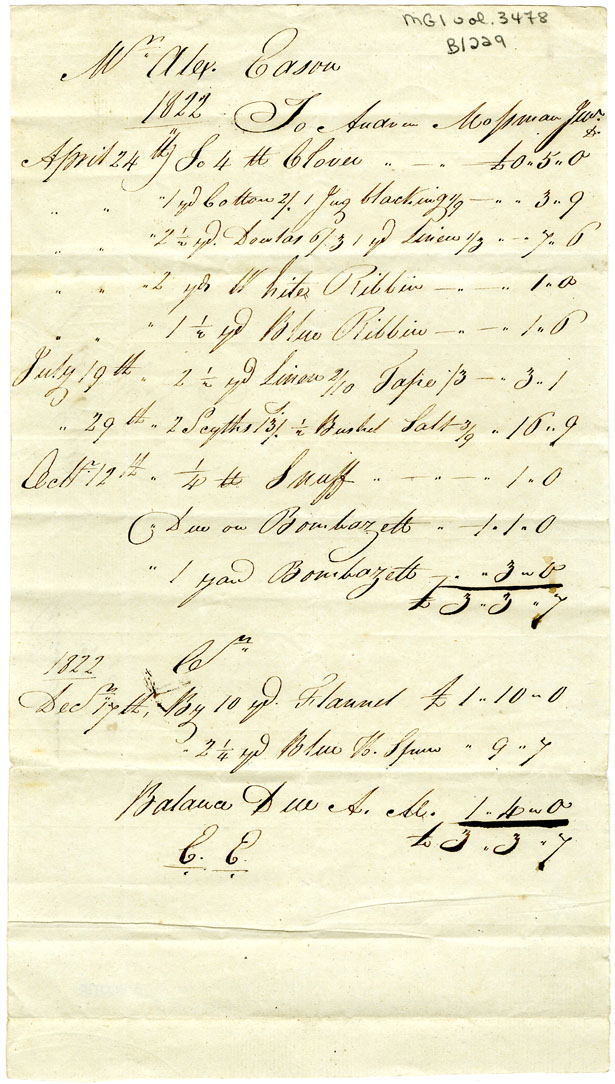 MG1 vol. 3478
B1229
Mr. Alex. Eason
1822 To Andrew Mossman Junr. Dr.
April 24th To 4 lb Clover " - £0"5"0
" " "1 yd Cotton 2/. 1 Jug blacking 1/9 - " 3"9
" " "2 1/2 yd. Dowlas 6/3 1 yd Linen 1/3 " - 7"6
" " "2 yds White Ribbin - " - " 1"0
" " "1 1/2 yd Blue Ribbin - " - " 1"6
July 19th " 2 1/2 yd Linen 2/10 Tape /3 - " 3"1
" 29th " 2 Scyths 13/. 1/2 Bushel Salt 3/9 " 16"9
Octr. 12th " 1/4 lb Snuff " - " - " 1"0
" Due on Bombazett " - 1"1"0
" 1 yard Bombazett - " " 3"0
£3"3"7
1822 Cr.
Decr. 17th, By 10 yd. Flannel £1"10"0
" 2 1/4 yd Blue H. Spun " 9"7
Balance Due A. M. 1"4"0
£3"3"7
E. E.